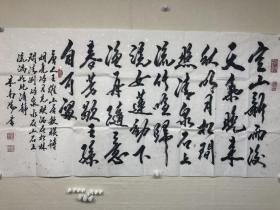 空山新雨後
天氣晚来
秋明月松間
照清泉石上
流竹喧歸
浣女蓮動下
渔舟隨意
春芳歇王孫
自可留
唐王維山居秋暝詩